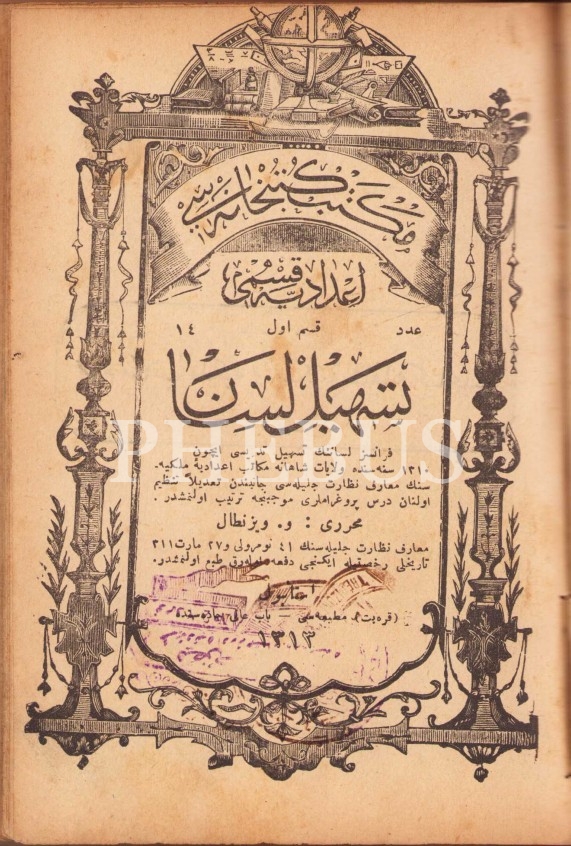 مكتب كتبخانه‌سی
اعدادیه قسمی
عدد قسم اول ١٤
تسهیل لسان
فرانسز لساننك تسهیل تدریسی ایچون
١٣١٠ سنه‌سنده ولایات شاهانه مكاتب اعدادیهٔ ملكیه‌
سنك معارف نظارت جلیله‌سی جانبندن تعدیلاً تنظیم
اولنان درس پروغراملری موجبنجه ترتیب اولنمشدر .
محرری : و . ویزنطال
معارف نظارت جلیله‌سنك ٤١ نومرولی و ٢٧ مارت ٣١١
تاریخلی رخصتیله ایكنجی دفعه اوله‌رق طبع اولنمشدر.
استانبول
(قره‌بت) مطبعه‌سی باب عالی جاده‌سنده
١٣١٣
PHEBUS